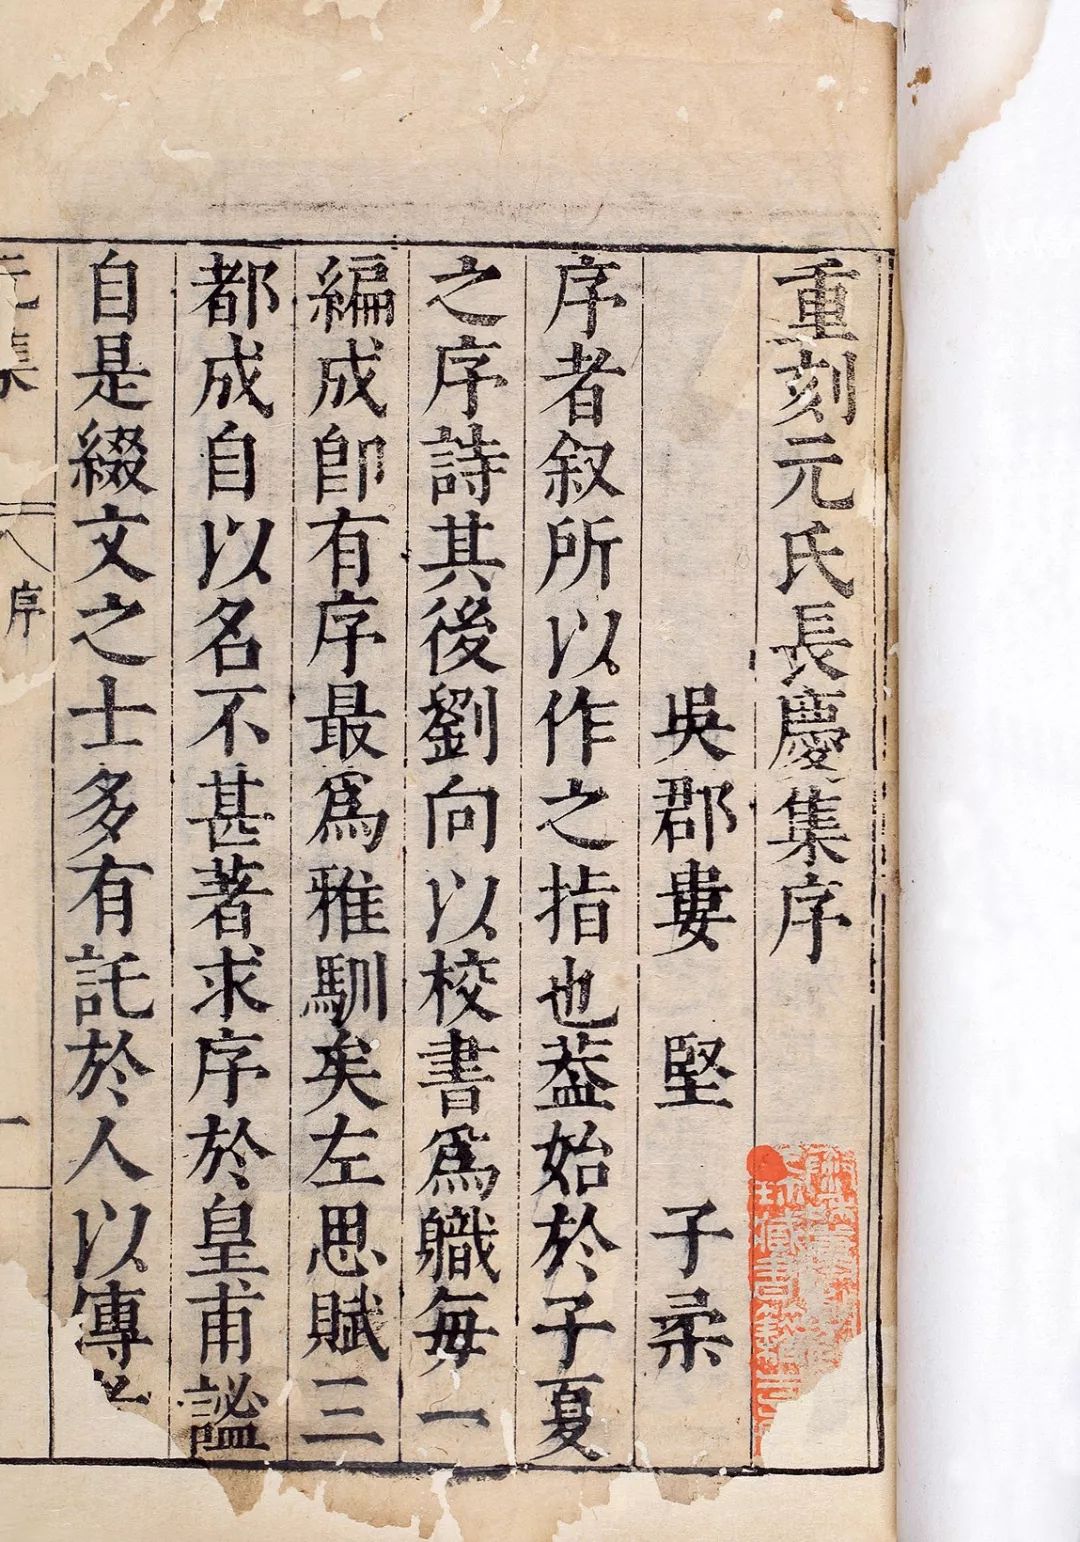 重刻元氏長慶集序
吳郡婁堅子柔
序者叙所以作之指也葢始於子夏
之序詩其後劉向以校書爲職每一
編成卽有序最爲雅馴矣左思賦三
都成自以名不甚著求序於皇甫謐
自是綴文之士多有託於人以傳
元集
序
一